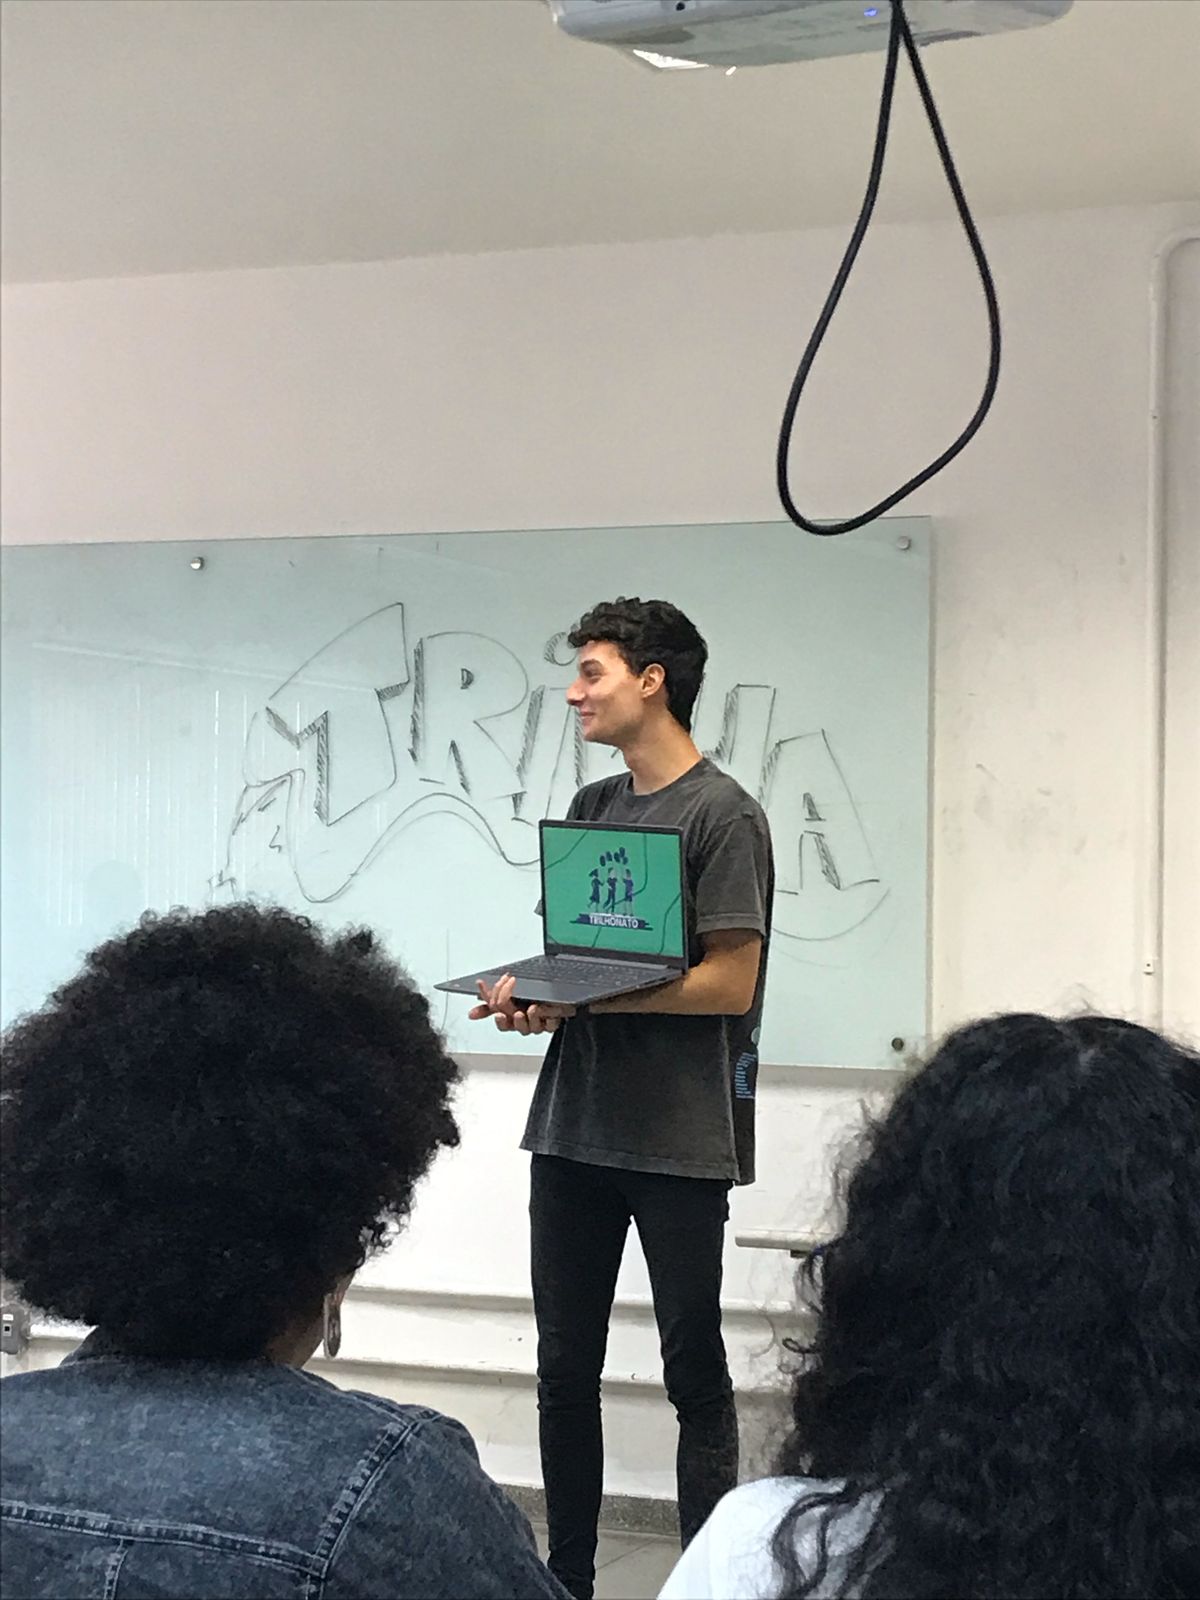 TRiLHA
TRILHONATO